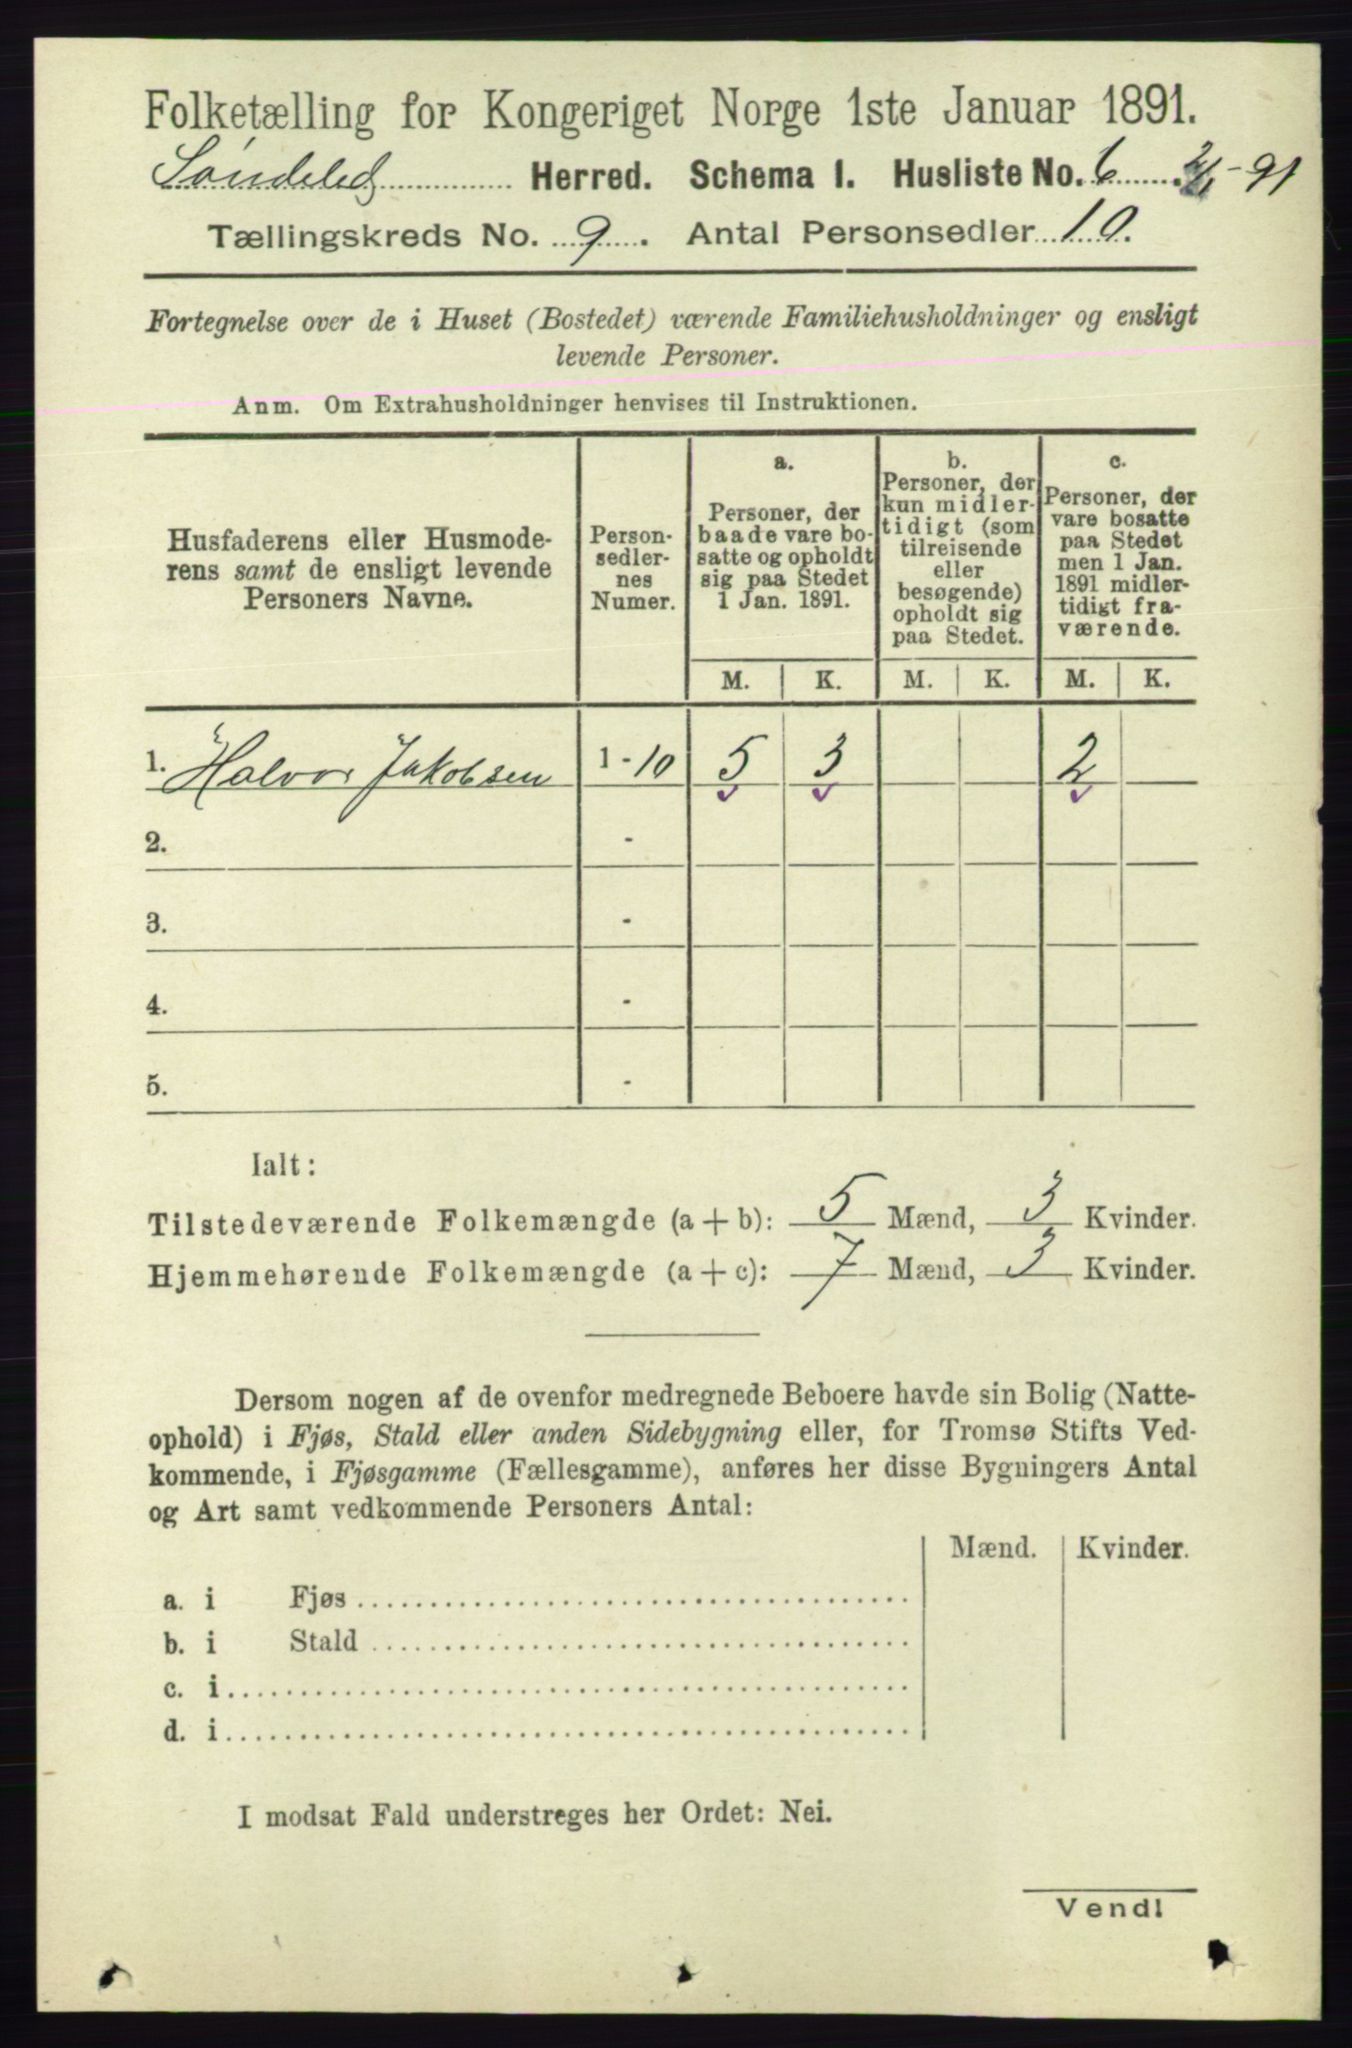 Folketælling for Kongeriget Norge 1ste Januar 1891.
Søndeled Herred. Schema 1. Husliste No. 6. 2/1-91
Tællingskreds No. 9. Antal Personsedler 10.
Fortegnelse over de i Huset (Bostedet) værende Familiehusholdninger og ensligt
levende Personer.
Anm. Om Extrahusholdninger henvises til Instruktionen.
Husfaderens eller Husmode-
rens samt de ensligt levende
Personers Navne.
Person-
sedler-
nes
Numer.
a.
Personer, der
baade vare bo-
satte og opholdt
sig paa Stedet
1 Jan. 1891.
b.
Personer, der
kun midler-
tidigt (som
tilreisende
eller
besøgende)
opholdt sig
paa Stedet.
c.
Personer, der
vare bosatte
paa Stedet
men 1 Jan.
1891 midler-
tidigt fra-
værende.
M. K. M. K. M. K.
1. Halvor Jakobsen 1-10 5 3 2
2. -
3. -
4. -
5. -
Ialt:
Tilstedeværende Folkemængde (a+b): 5 Mænd, 3 Kvinder.
Hjemmehørende Folkemængde (a+c): 7 Mænd, 3 Kvinder.
Dersom nogen af de ovenfor medregnede Beboere havde sin Bolig (Natte-
ophold) i Fjøs, Stald eller anden Sidebygning eller, for Tromsø Stifts Ved-
kommende, i Fjøsgamme (Fællesgamme), anføres her disse Bygningers Antal
og Art samt vedkommende Personers Antal:
Mænd. Kvinder.
a. i Fjøs
b. i Stald
c. i
d. i
I modsat Fald understreges her Ordet: Nei.
Vend!